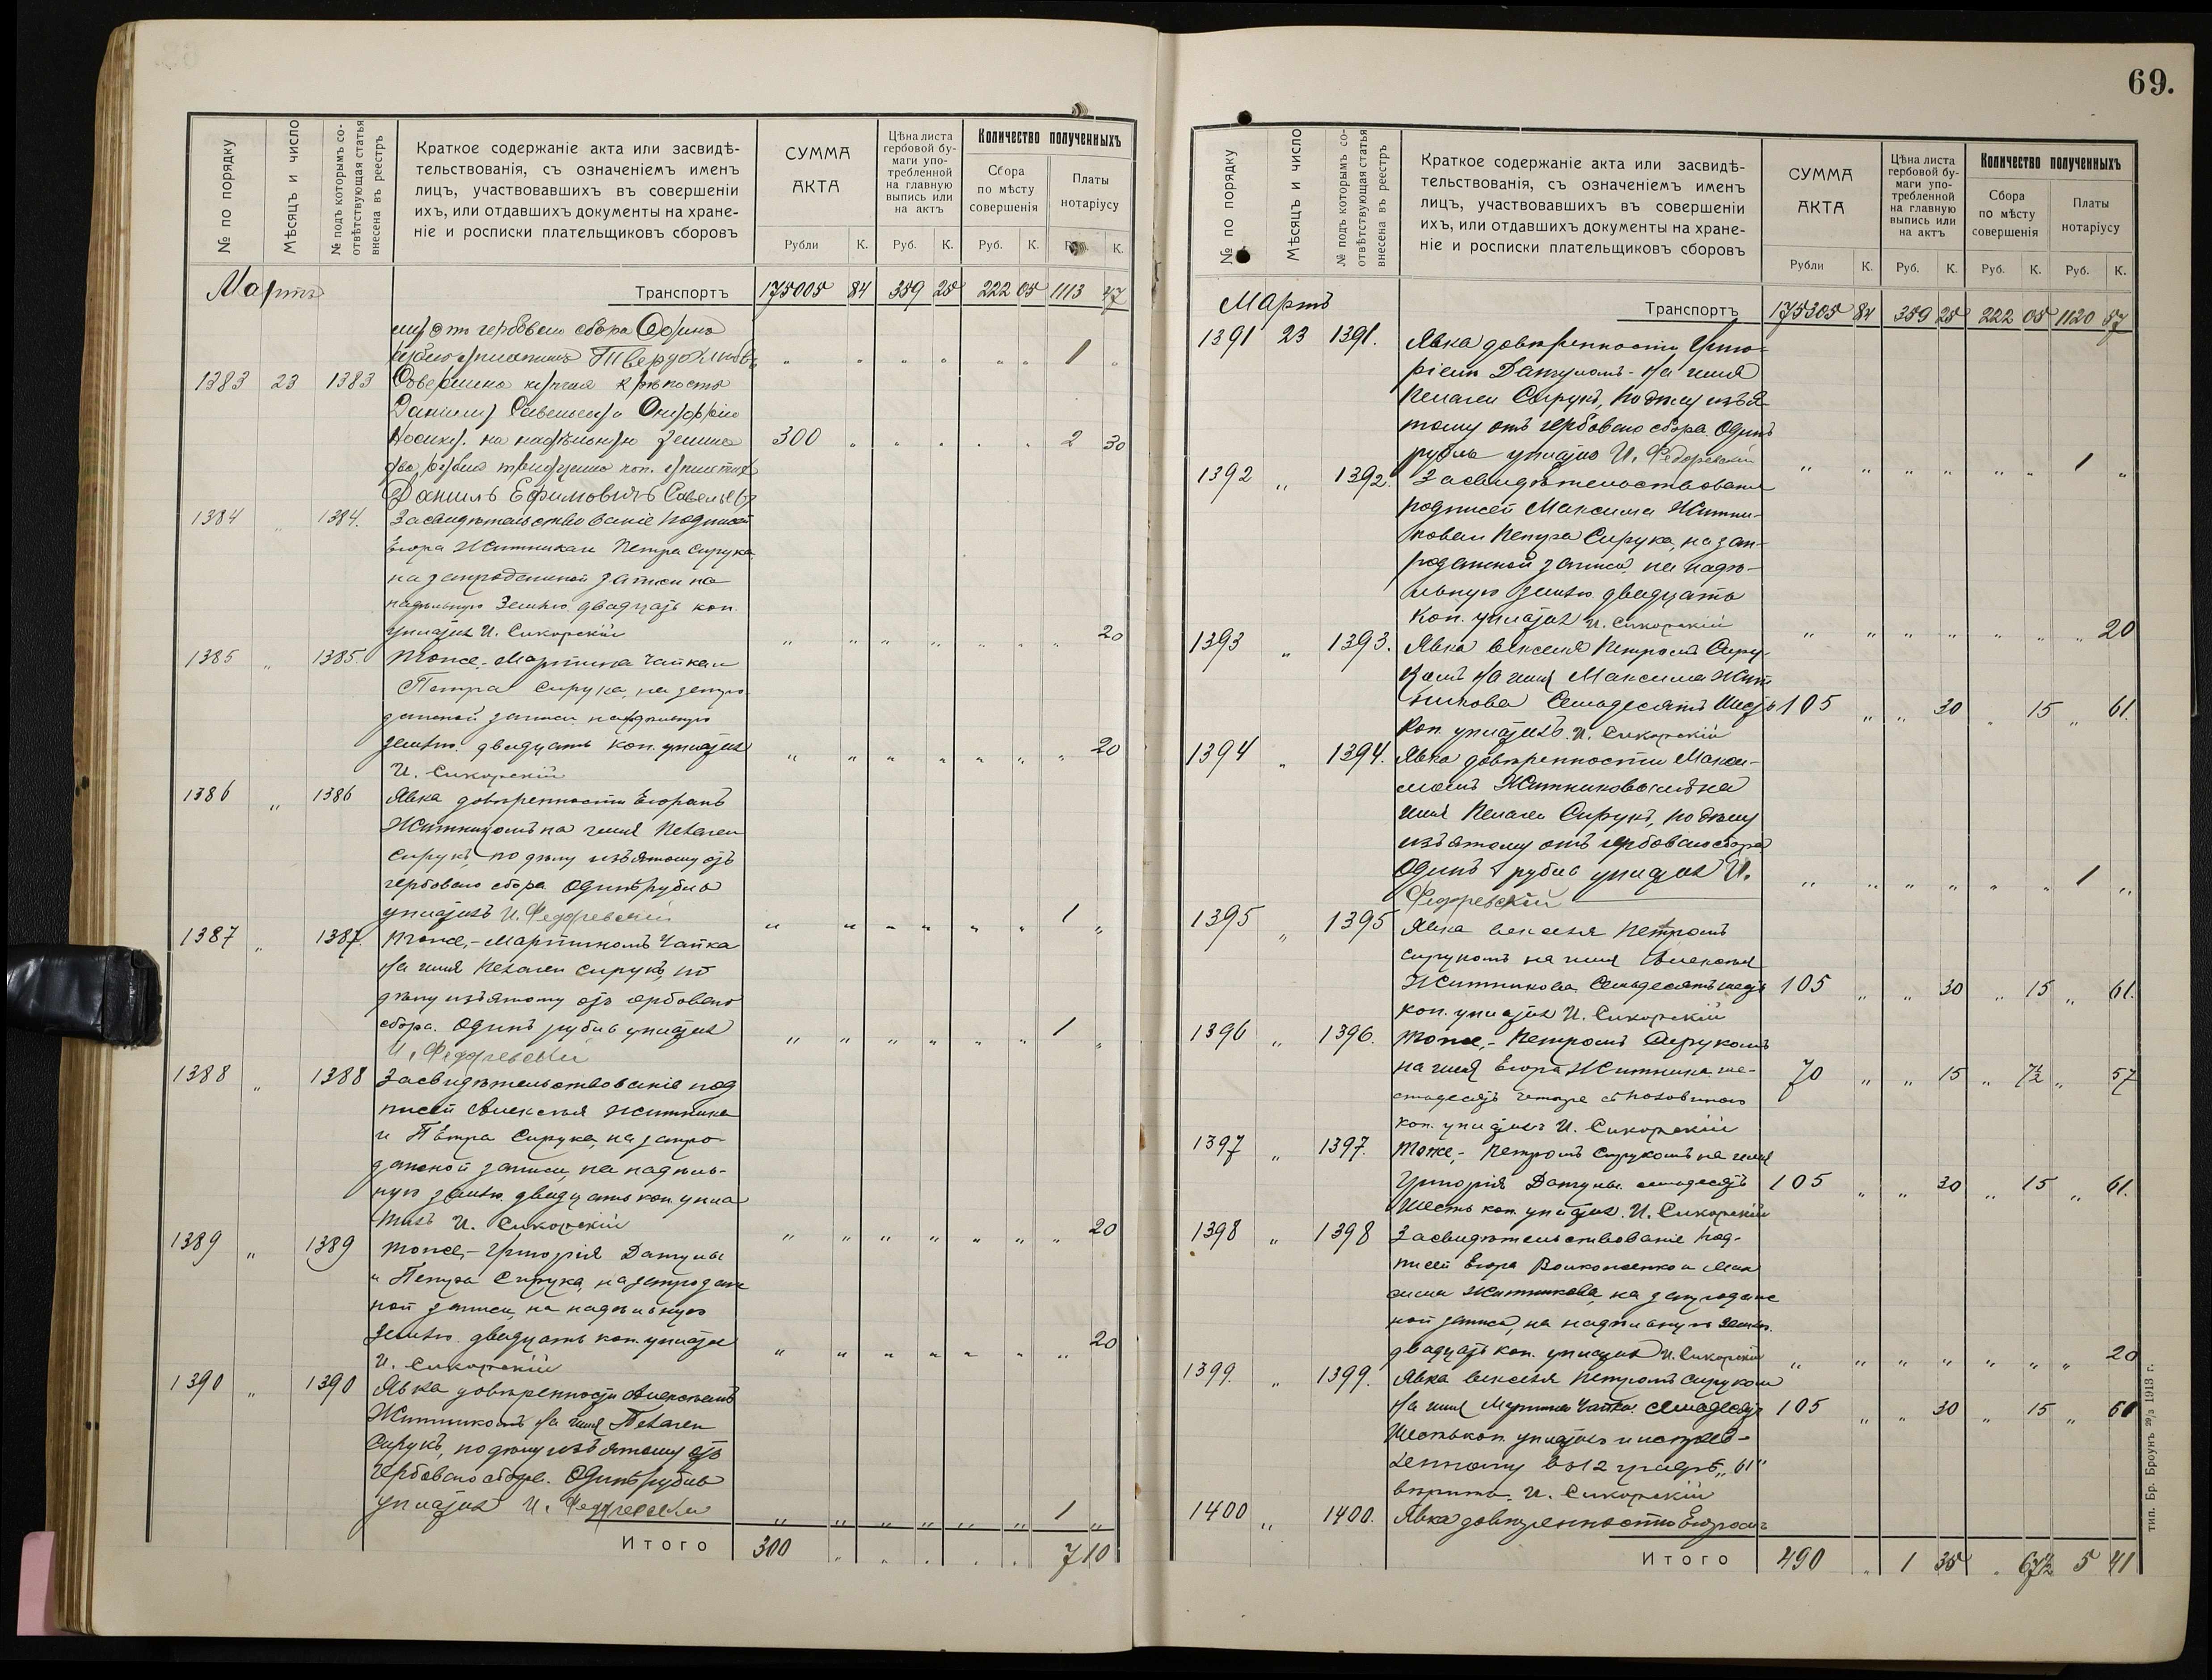 69.
№ по порядку
Мѣсяцъ и число
№ подъ которымъ со-
отвѣтствующая статья
внесена въ реестръ
Краткое содержаніе акта или засвидѣ-
тельствованія, съ означеніемъ именъ
лицъ, участвовавшихъ въ совершеніи
ихъ, или отдавшихъ документы на хране-
ніе и росписки плательщиковъ сборовъ
СУММА
АКТА
Рубли К.
Цѣна листа
гербовой бу-
маги упо-
требленной
на главную
выпись или
на актъ
Руб. К.
Количество полученныхъ
Сбора
по мѣсту
совершенія
Руб. К.
Платы
нотаріусу
К.
Мартъ Транспортъ 175005 84 359 25 222 05 1113 47
отъ гербоваго сбора Одинъ
Твердохлѣбъ „ „ „ „ „ „ 1 „
1383 23 1383 Совершена купчая крѣпость
Данилу Савельеву Онуфрію
на надѣльную землю 300 „ „ „ „ „ 2 30
два рубля тридцать коп. уплатилъ
Данилъ Ефимовичъ Савельевъ
1384 „ 1384. Засвидѣтельствованіе подписей
Егора Житника и Петра Сирука
на запроданной записи на
надѣльную землю двадцать коп.
уплатилъ И. Сикорскій „ „ „ „ „ „ „ 20
1385 „ 1385. Тоже,- Мартина Чапка и
Петра Сирука, на запро-
данной записи надѣльную
землю двадцать коп. уплатилъ „ „ „ „ „ „ „ 20
И. Сикорскій
1386 „ 1386 Явка довѣренности Егоромъ
Житникомъ на имя Пелагеи
Сирукъ, по дѣлу изъятому отъ
гербоваго сбора Одинъ рубль
уплатилъ И. Федоревскій „ „ „ „ „ „ 1 „
1387 „ 1387. Тоже,- Мартиномъ Чапка
на имя Пелагеи Сирукъ, по
дѣлу изъятому отъ гербоваго
сбора. Одинъ рубль уплатилъ „ „ „ „ „ „ 1 „
И. Федоревскій
1388 „ 1388 Засвидѣтельствованіе под
писей Алексѣя Житника
и Петра Сирука, на запро-
данной записи, на надѣль-
ную землю двадцать коп. упла
тилъ И. Сикорскій „ „ „ „ „ „ „ 20
1389 „ 1389 Тоже,- Григорія Датулы
и Петра Сирука, на запродан
ной записи, на надѣльную
землю двадцать коп. уплатилъ „ „ „ „ „ „ „ 20
И. Сикорскій
1390 „ 1390 Явка довѣренности Алексѣемъ
Житникомъ на имя Пелагеи
Сирукъ, по дѣлу изъятому отъ
гербоваго сбора. Одинъ рубль
уплатилъ И. Федоревскій „ „ „ „ „ „ 1 „
Итого 300 „ „ „ „ „ 7 10
№ по порядку
Мѣсяцъ и число
№ подъ которымъ со-
отвѣтствующая статья
внесена въ реестръ
Краткое содержаніе акта или засвидѣ-
тельствованія, съ означеніемъ именъ
лицъ, участвовавшихъ въ совершеніи
ихъ, или отдавшихъ документы на хране-
ніе и росписки плательщиковъ сборовъ
СУММА
АКТА
Рубли К.
Цѣна листа
гербовой бу-
маги упо-
требленной
на главную
выпись или
на актъ
Руб. К.
Количество полученныхъ
Сбора
по мѣсту
совершенія
Руб. К.
Платы
нотаріусу
Руб. К.
Мартъ Транспортъ 175305 84 359 25 222 05 1120 57
1391 23 1391. Явка довѣренности Григо-
ріемъ Датуломъ на имя
Пелагеи Сирукъ, по дѣлу изъя
тому отъ гербоваго сбора Одинъ
рубль уплатилъ И. Федоревскій „ „ „ „ „ „ 1 „
1392 „ 1392. Засвидѣтельствованіе
подписей Максима Житни-
кова и Петра Сирука, на зап-
роданной записи, на надѣ-
льную землю двадцать
коп. уплатилъ И. Сикорскій „ „ „ „ „ „ „ 20
1393 „ 1393. Явка векселя Петромъ Сиру-
комъ на имя Максима Жит
никова Семьдесятъ шесть 105 „ „ 30 „ 15 „ 61.
коп. уплатилъ И. Сикорскій
1394 „ 1394. Явка довѣренности Макси-
момъ Житниковымъ на
имя Пелагеи Сирукъ, по дѣлу
изъятому отъ гербоваго сбора
Одинъ рубль уплатилъ И. „ „ „ „ „ „ 1 „
Федоревскій
1395 „ 1395 Явка векселя Петромъ
Сирукомъ на имя Алексѣя
Житникова Семьдесятъ шесть 105 „ „ 30 „ 15 „ 61.
коп. уплатилъ И. Сикорскій
1396 „ 1396. Тоже,- Петромъ Сирукомъ
на имя Егора Житника ше- 70 „ „ 15 „ 7½ „ 57
стьдесятъ четыре съ половиною
коп. уплатилъ И. Сикорскій
1397 „ 1397. Тоже,- Петромъ Сирукомъ на имя
Григорія Датулы семьдесятъ 105 „ „ 30 „ 15 „ 61.
шесть коп. уплатилъ И. Сикорскій
1398 „ 1398 Засвидѣтельствованіе под-
писей Егора и Мак
сима Житникова, на запродан
ной записи, на надѣльную землю.
двадцать коп. уплатилъ И. Сикорскій „ „ „ „ „ „ „ 20
1399. „ 1399. Явка векселя Петромъ Сирукомъ
на имя Мартина Чапка. Семьдесятъ 105 „ „ 30 „ 15 „ 61
шесть коп. уплатилъ и исправ-
ленному въ 12 графѣ „61“
вѣрить. И. Сикорскій
1400 „ 1400. Явка довѣренности Егоромъ
Итого 490 „ 1 35 „ 67½ 5 41
тип. Бр. Броунъ 29/3 1913 г.